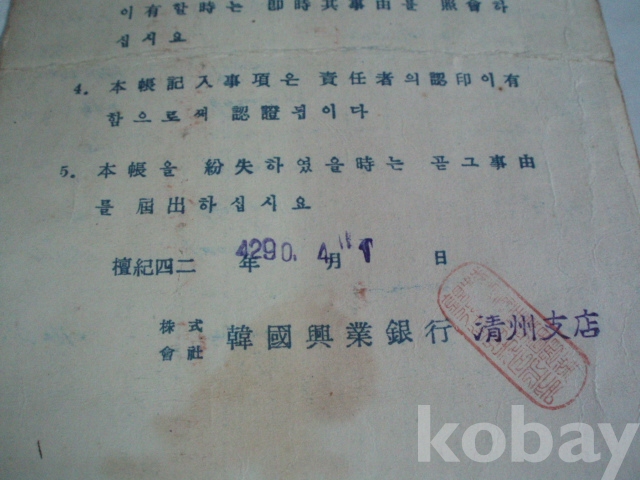 이有할時는 即時其事由를 照會하
십시요
4. 本帳記入事項은 責任者의認印이有
함으로써 認證됨이다
5. 本帳을 紛失하였을時는 곧그事由
를 屆出하십시요
檀紀四二 4290年 4月 1日
株式會社 韓國興業銀行 清州支店
kobay